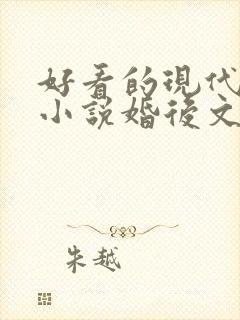 好看的現代
小說婚後文
朱越